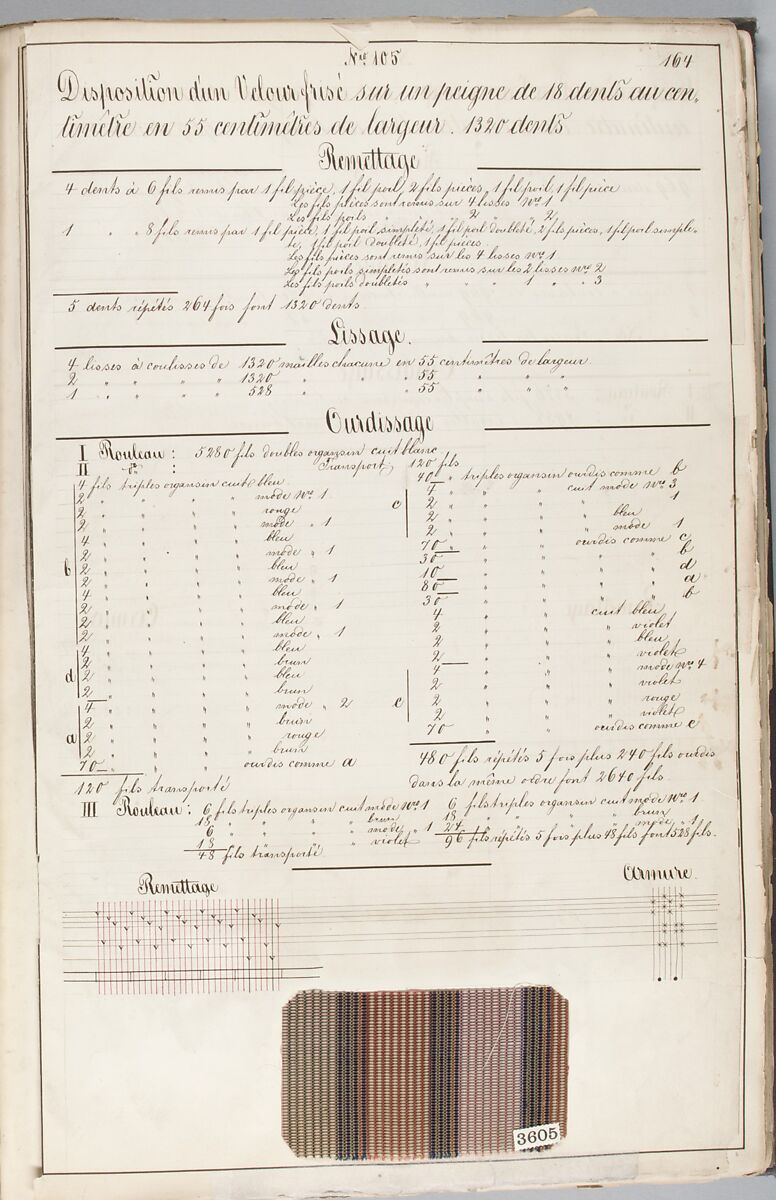 Nº 105
164
Disposition d'un Velour frisé sur un peigne de 18 dents au cen-
timètre en 55 centimètres de largeur. 1320 dents
Remettage
4 dents à 6 fils remis par 1 fil pièce, 1 fil poil, 2 fils pièces, 1 fil poil, 1 fil pièce
Les fils pièces sont remis sur 4 lisses Nº 1
Les fils poils " 2 " 2
1 " " 8 fils remis par 1 fil pièce, 1 fil poil simpleté, 1 fil poil doubleté, 2 fils pièces, 1 fil poil simple-
té, 1 fil poil doubleté, 1 fil pièces.
Les fils pièces sont remis sur les 4 lisses Nº 1
Les fils poils simpletés sont remis sur les 2 lisses Nº 2
Les fils poils doubletés " " " 1 " " 3
5 dents répétés 264 fois font 1320 dents.
Lissage.
4 lisses à coulisses de 1320 mailles chacune en 55 centimètres de largeur.
2 " " " " 1320 " " 55 " " "
1 " " " " 528 " " 55 " " "
Ourdissage
I Rouleau : 5280 fils doubles organsin cuit blanc
II dº :
4 fils triples organsin cuit bleu
2 " " " " mode Nº 1
2 " " " " rouge
2 " " " " mode " 1
4 " " " " bleu
2 " " " " mode " 1
b 2 " " " " bleu
2 " " " " mode " 1
4 " " " " bleu
2 " " " " mode " 1
2 " " " " bleu
2 " " " " mode " 1
4 " " " " bleu
2 " " " " brun
d 2 " " " " bleu
2 " " " " brun
4 " " " " mode " 2
2 " " " " brun
a 2 " " " " rouge
2 " " " " brun
70 " " " ourdis comme a
120 fils transporté
Transport, 120 fils
40 " triples organsin ourdis comme b
4 " " " cuit mode Nº 3
c 2 " " " " 1
2 " " " bleu
2 " " " mode 1
70 " " " ourdis comme c
30 " " " " b
10 " " " " d
80 " " " " a
30 " " " " b
4 " " " cuit bleu
2 " " " violet
2 " " " bleu
2 " " " violet
4 " " " mode Nº 4
e 2 " " " violet
2 " " " rouge
2 " " " violet
70 " " " ourdis comme e
480 fils répétés 5 fois plus 240 fils ourdis
dans la même ordre font 2640 fils.
III Rouleau : 6 fils triples organsin cuit mode Nº 1
18 " " " " brun
6 " " " " mode " 1
18 " " " " violet
48 fils transporté
6 fils triples organsin cuit mode Nº 1
18 " " " " brun
24 " " " " mode " 1
96 fils répétés 5 fois plus 48 fils font 528 fils.
Remettage
Armure.
3605